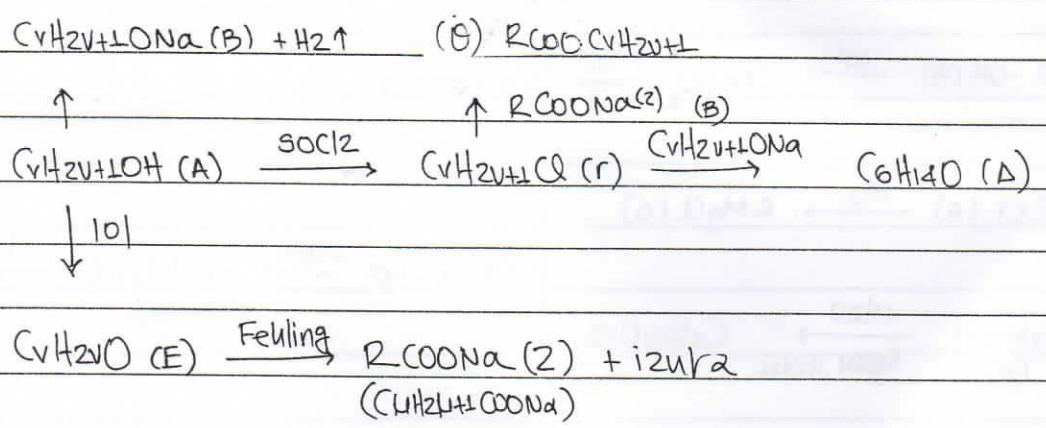 CνH2ν+1ONa (B) + H2↑ (Θ) RCOOCνH2ν+1
↑ ↑ RCOONa(Z) (B)
CνH2ν+1OH (A) SOCl2→ CνH2ν+1Cl (Γ) CνH2ν+1ONa→ C6H14O (Δ)
↓ |O|
CνH2νO (E) Fehling→ RCOONa (Z) + ίζημα
(CμH2μ+1COONa)